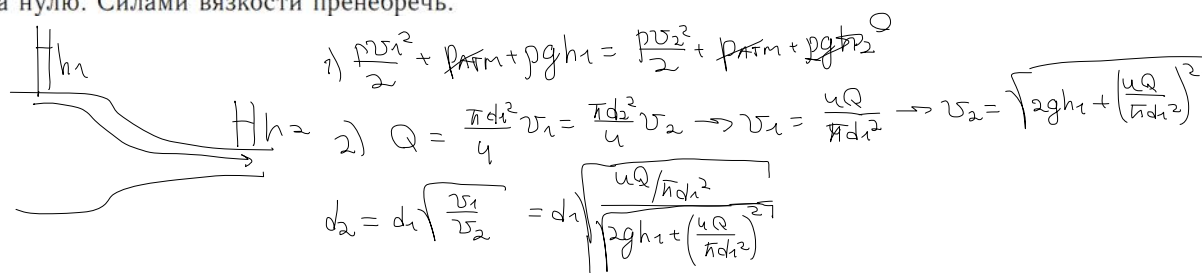 а нулю. Силами вязкости пренебречь.
h₁
h₂
1) ρv₁²/2 + pатм + ρgh₁ = ρv₂²/2 + pатм + ρgh₂ 0
2) Q = πd₁²/4 v₁ = πd₂²/4 v₂ → v₁ = 4Q/πd₁² → v₂ = √(2gh₁ + (4Q/πd₁²)²)
d₂ = d₁ √(v₁/v₂) = d₁ √((4Q/πd₁²)/√(2gh₁ + (4Q/πd₁²)²))